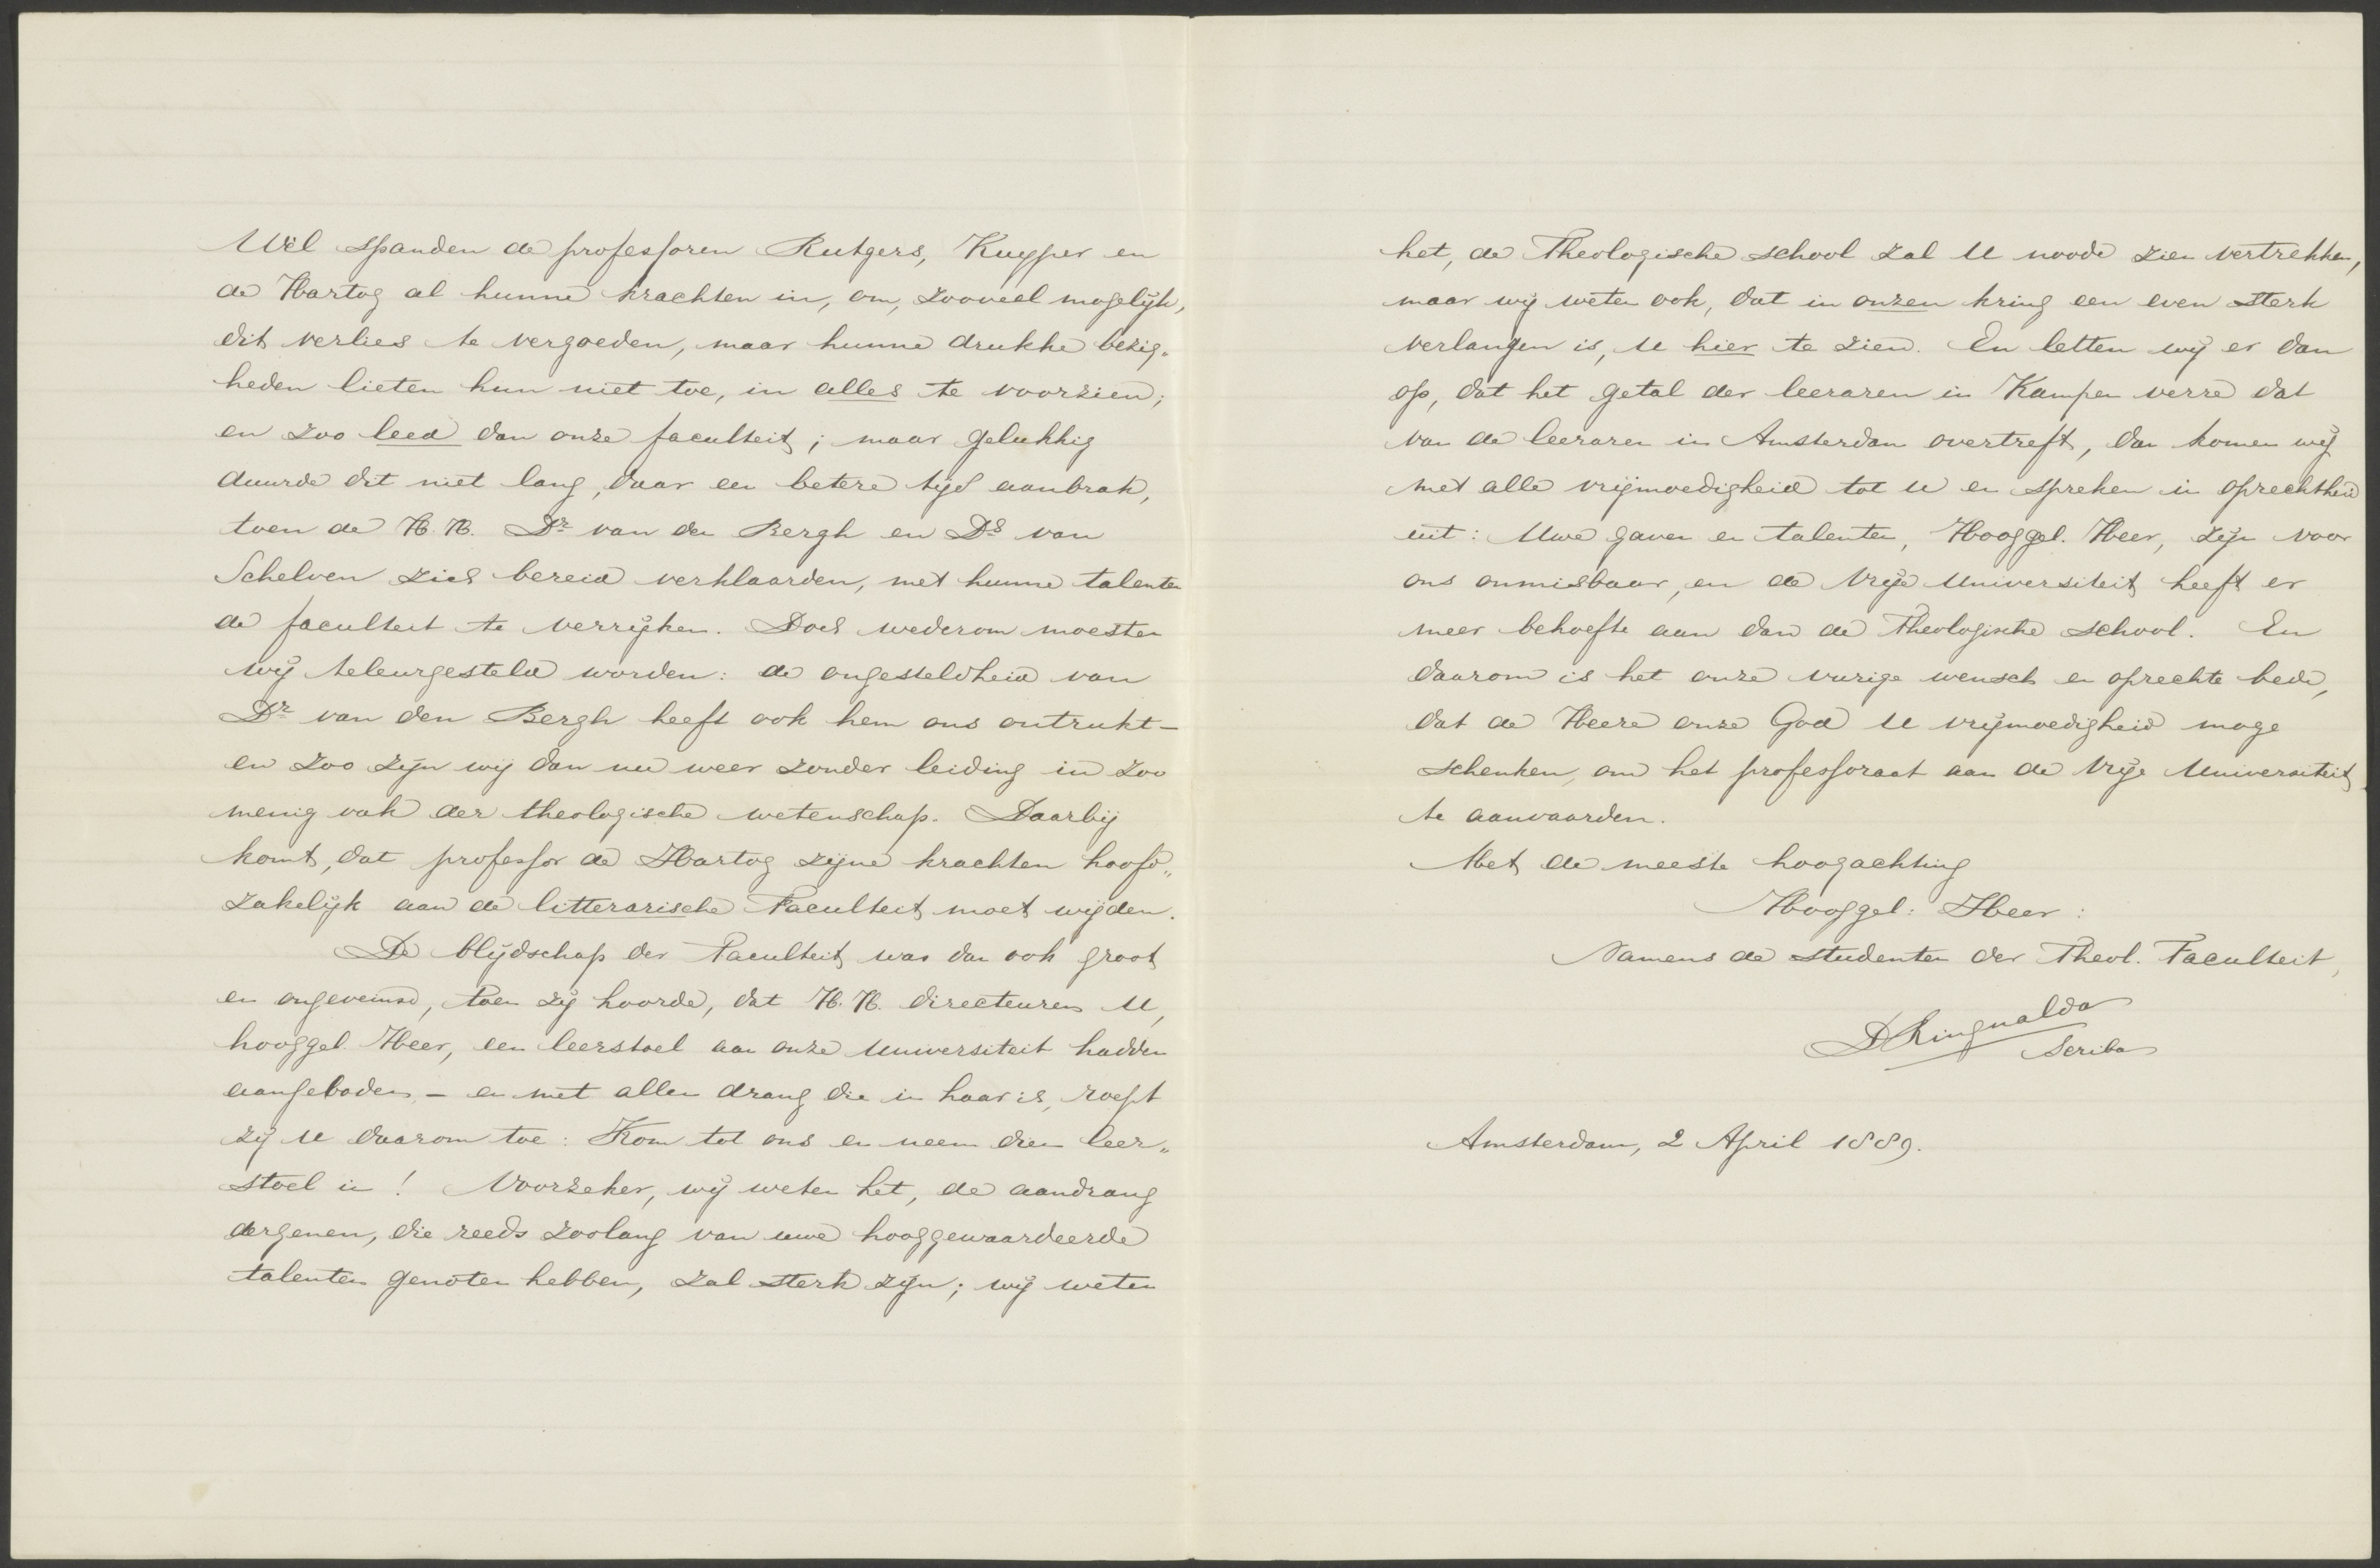 Wèl spanden de professoren Rutgers, Kuyper en
de Hartog al hunne krachten in, om, zooveel mogelijk,
dit verlies te vergoeden, maar hunne drukke bezig„
heden lieten hun niet toe, in alles te voorzien;
en zoo leed dan onze faculteit; maar gelukkig
duurde dit niet lang, daar een betere tijd aanbrak,
toen de H.H. Dr van den Bergh en Ds van
Schelven zich bereid verklaarden, met hunne talenten
de faculteit te verrijken. Doch wederom moesten
wij teleurgesteld worden: de ongesteldheid van
Dr van den Bergh heeft ook hem ons ontrukt —
en zoo zijn wij dan nu weer zonder leiding in zoo
menig vak der theologische wetenschap. Daarbij
komt, dat professor de Hartog zijne krachten hoofd„
zakelijk aan de litterarische Faculteit moet wijden.
De blijdschap der Faculteit was dan ook groot
en ongeveinsd, toen zij hoorde, dat H.H. directeuren U,
hooggel Heer, een leerstoel aan onze Universiteit hadden
aangeboden, — en met allen drang die in haar is, roept
zij U daarom toe: Kom tot ons en neem dien leer„
stoel in! Voorzeker, wij weten het, de aandrang
dergenen, die reeds zoolang van uwe hooggewaardeerde
talenten genoten hebben, zal sterk zijn; wij weten
het, de Theologische school zal U noode zien vertrekken,
maar wij weten ook, dat in onzen kring een even sterk
verlangen is, U hier te zien. En letten wij er dan
op, dat het getal der leeraren in Kampen verre dat
van de leeraren in Amsterdam overtreft, dan komen wij
met alle vrijmoedigheid tot U en spreken in oprechtheid
uit: Uwe gaven en talenten, Hooggel. Heer, zijn voor
ons onmisbaar, en de Vrije Universiteit heeft er
meer behoefte aan dan de Theologische school. En
daarom is het onze vurige wensch en oprechte bede,
dat de Heere onze God U vrijmoedigheid moge
schenken, om het professoraat aan de Vrije Universiteit
te aanvaarden.
Met de meeste hoogachting
Hooggel: Heer:
Namens de studenten der Theol. Faculteit,
D Ringnalda
Scriba
Amsterdam, 2 April 1889.